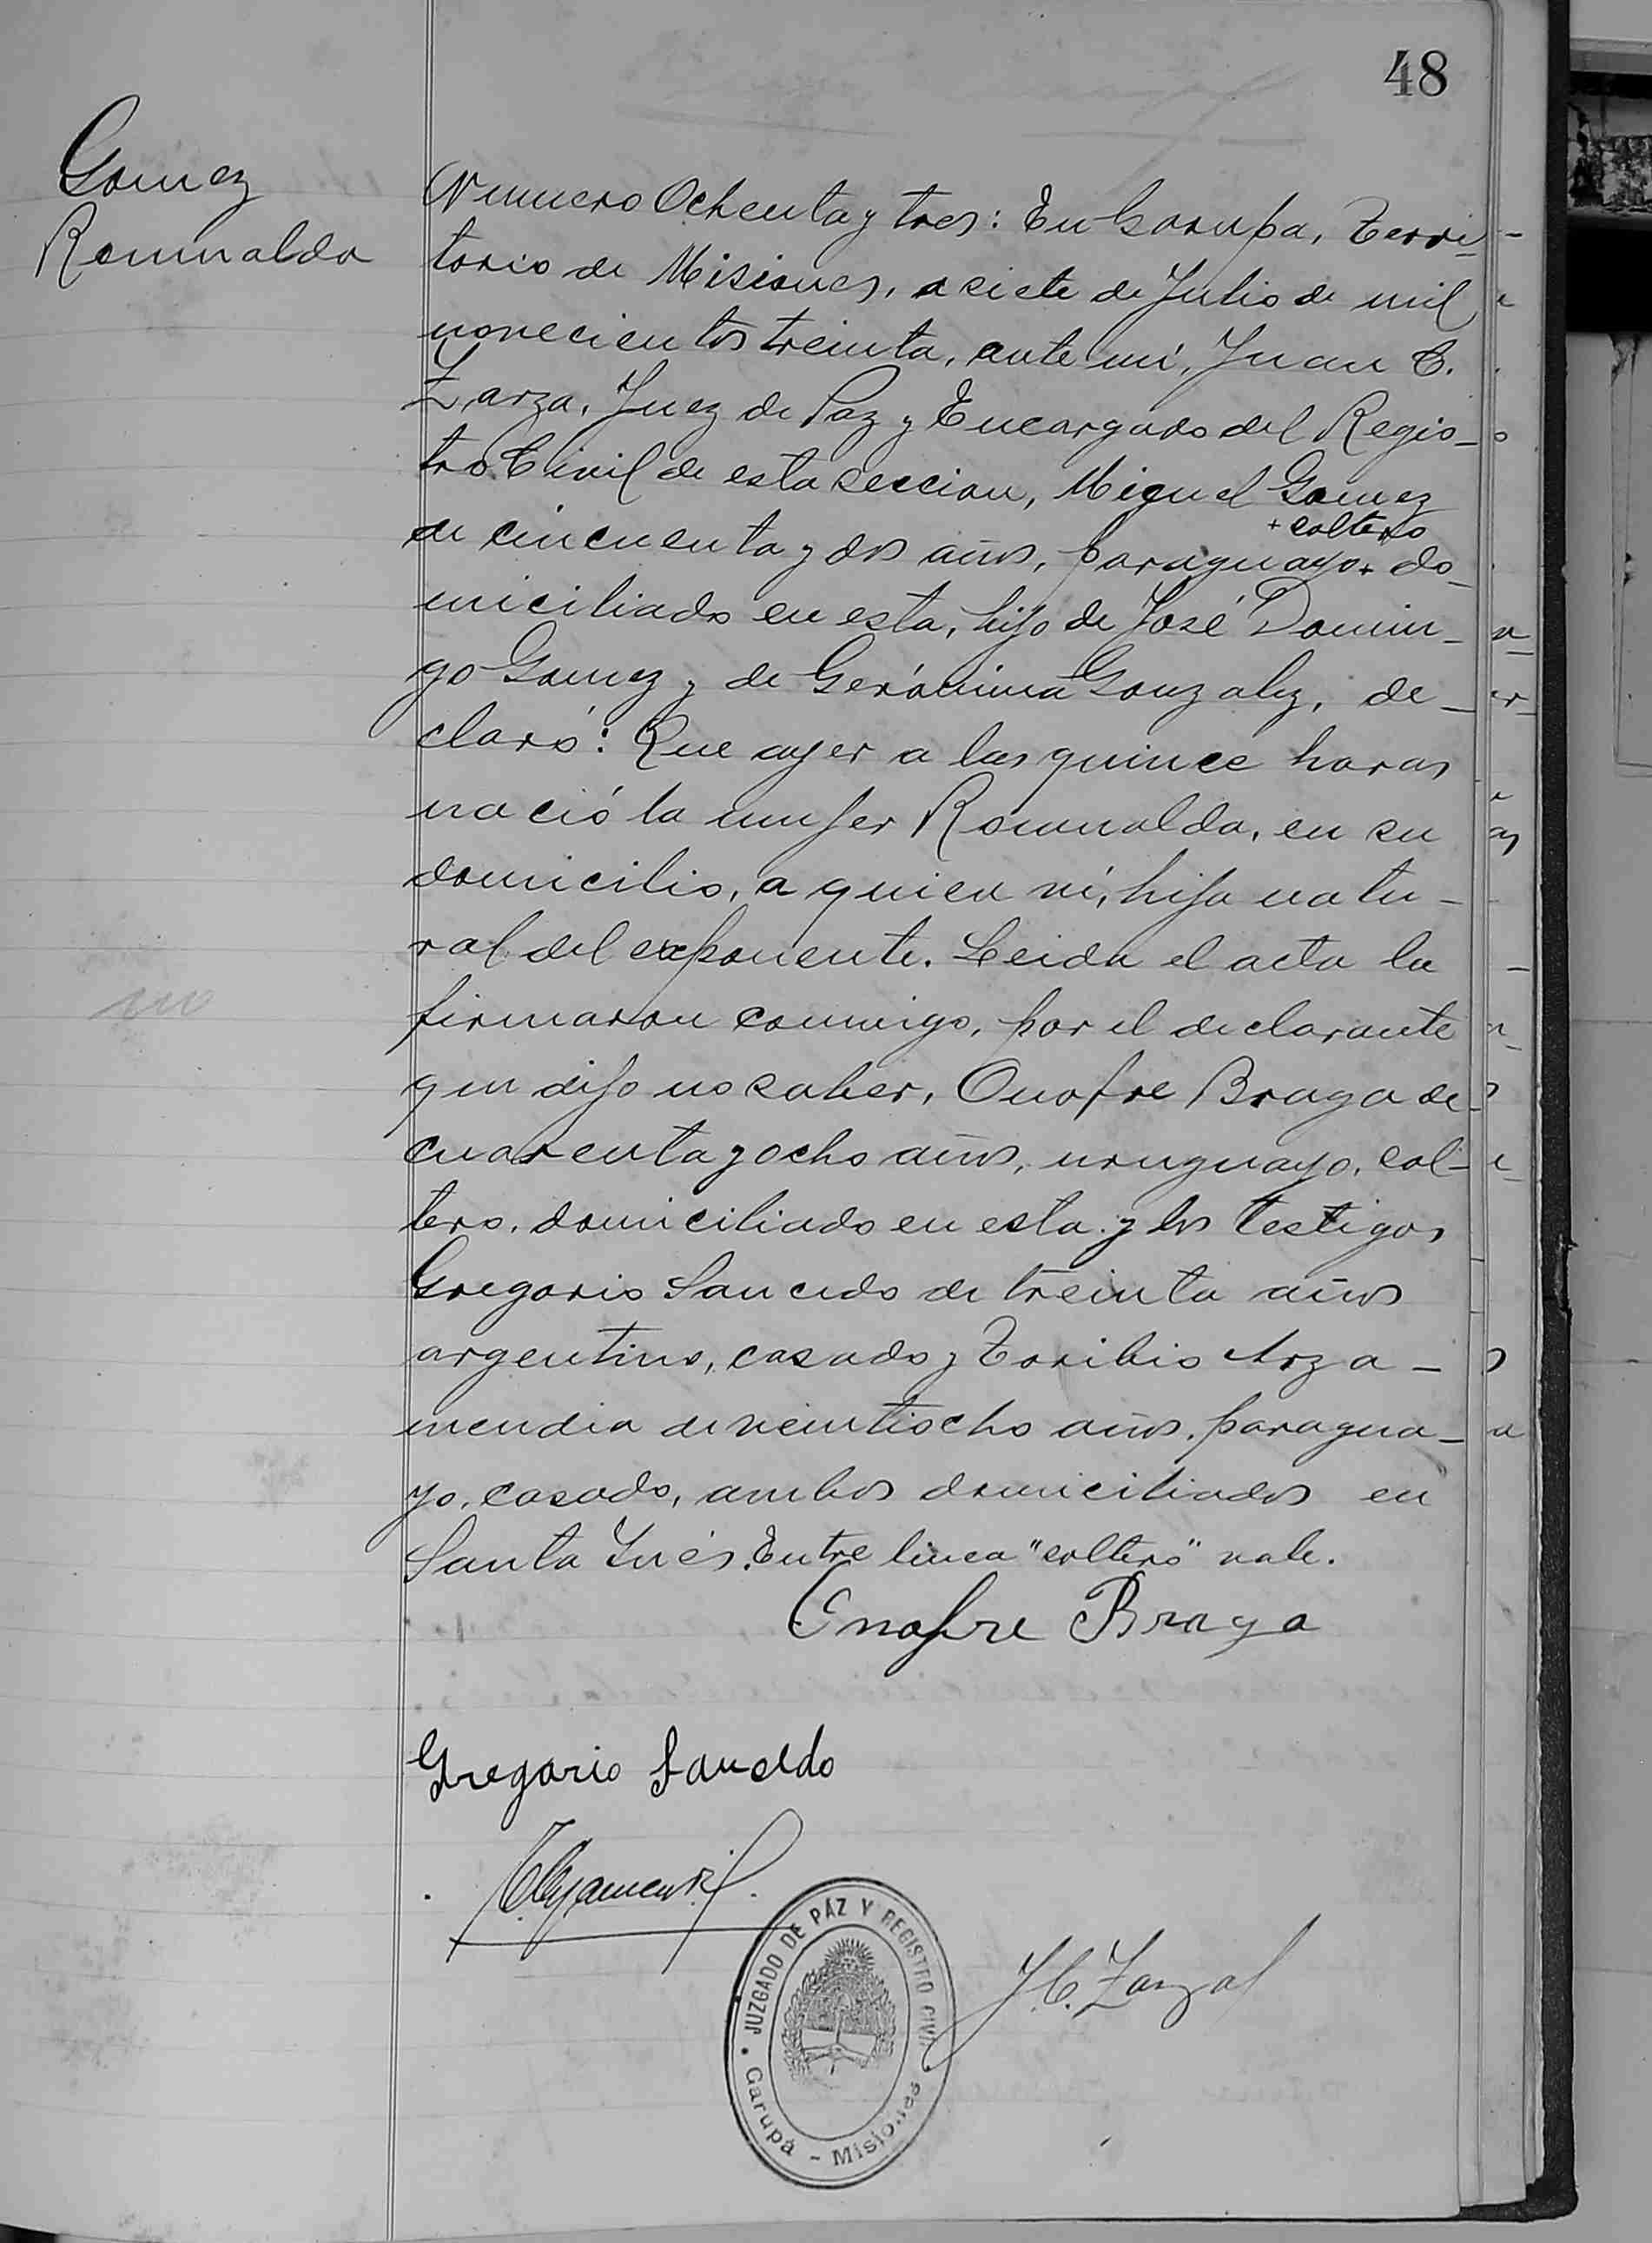 48
Gomez
Romualda
Numero Ochenta y tres: En Garupa, Terri-
torio de Misiones, a siete de Julio de mil
novecientos treinta, ante mí, Juan C.
Zarza, Juez de Paz y Encargado del Regis-
tro Civil de esta seccion, Miguel Gomez
+ soltero
de cincuenta y dos años, paraguayo + do-
miciliado en esta, hijo de José Domin-
go Gomez y de Gerónima Gonzalez, de-
claró: Que ayer a las quince horas
nació la mujer Romualda, en su
domicilio, a quien ví, hija natu-
ral del exponente. Leida el acta la
firmaron conmigo, por el declarante
que dijo no saber, Onofre Braga de
cuarenta y ocho años, uruguayo, sol-
tero, domiciliado en esta y los testigos
Gregorio Saucedo de treinta años
argentino, casado y Toribio Arza-
mendia de veintiocho años, paragua-
yo, casado, ambos domiciliados en
Santa Inés. Entre linea "soltero" vale.
Enofre Braga
Gregorio Sauceldo
J.C. Zarza
JUZGADO DE PÁZ Y REGISTRO CIVIL
Garupá - Misiones